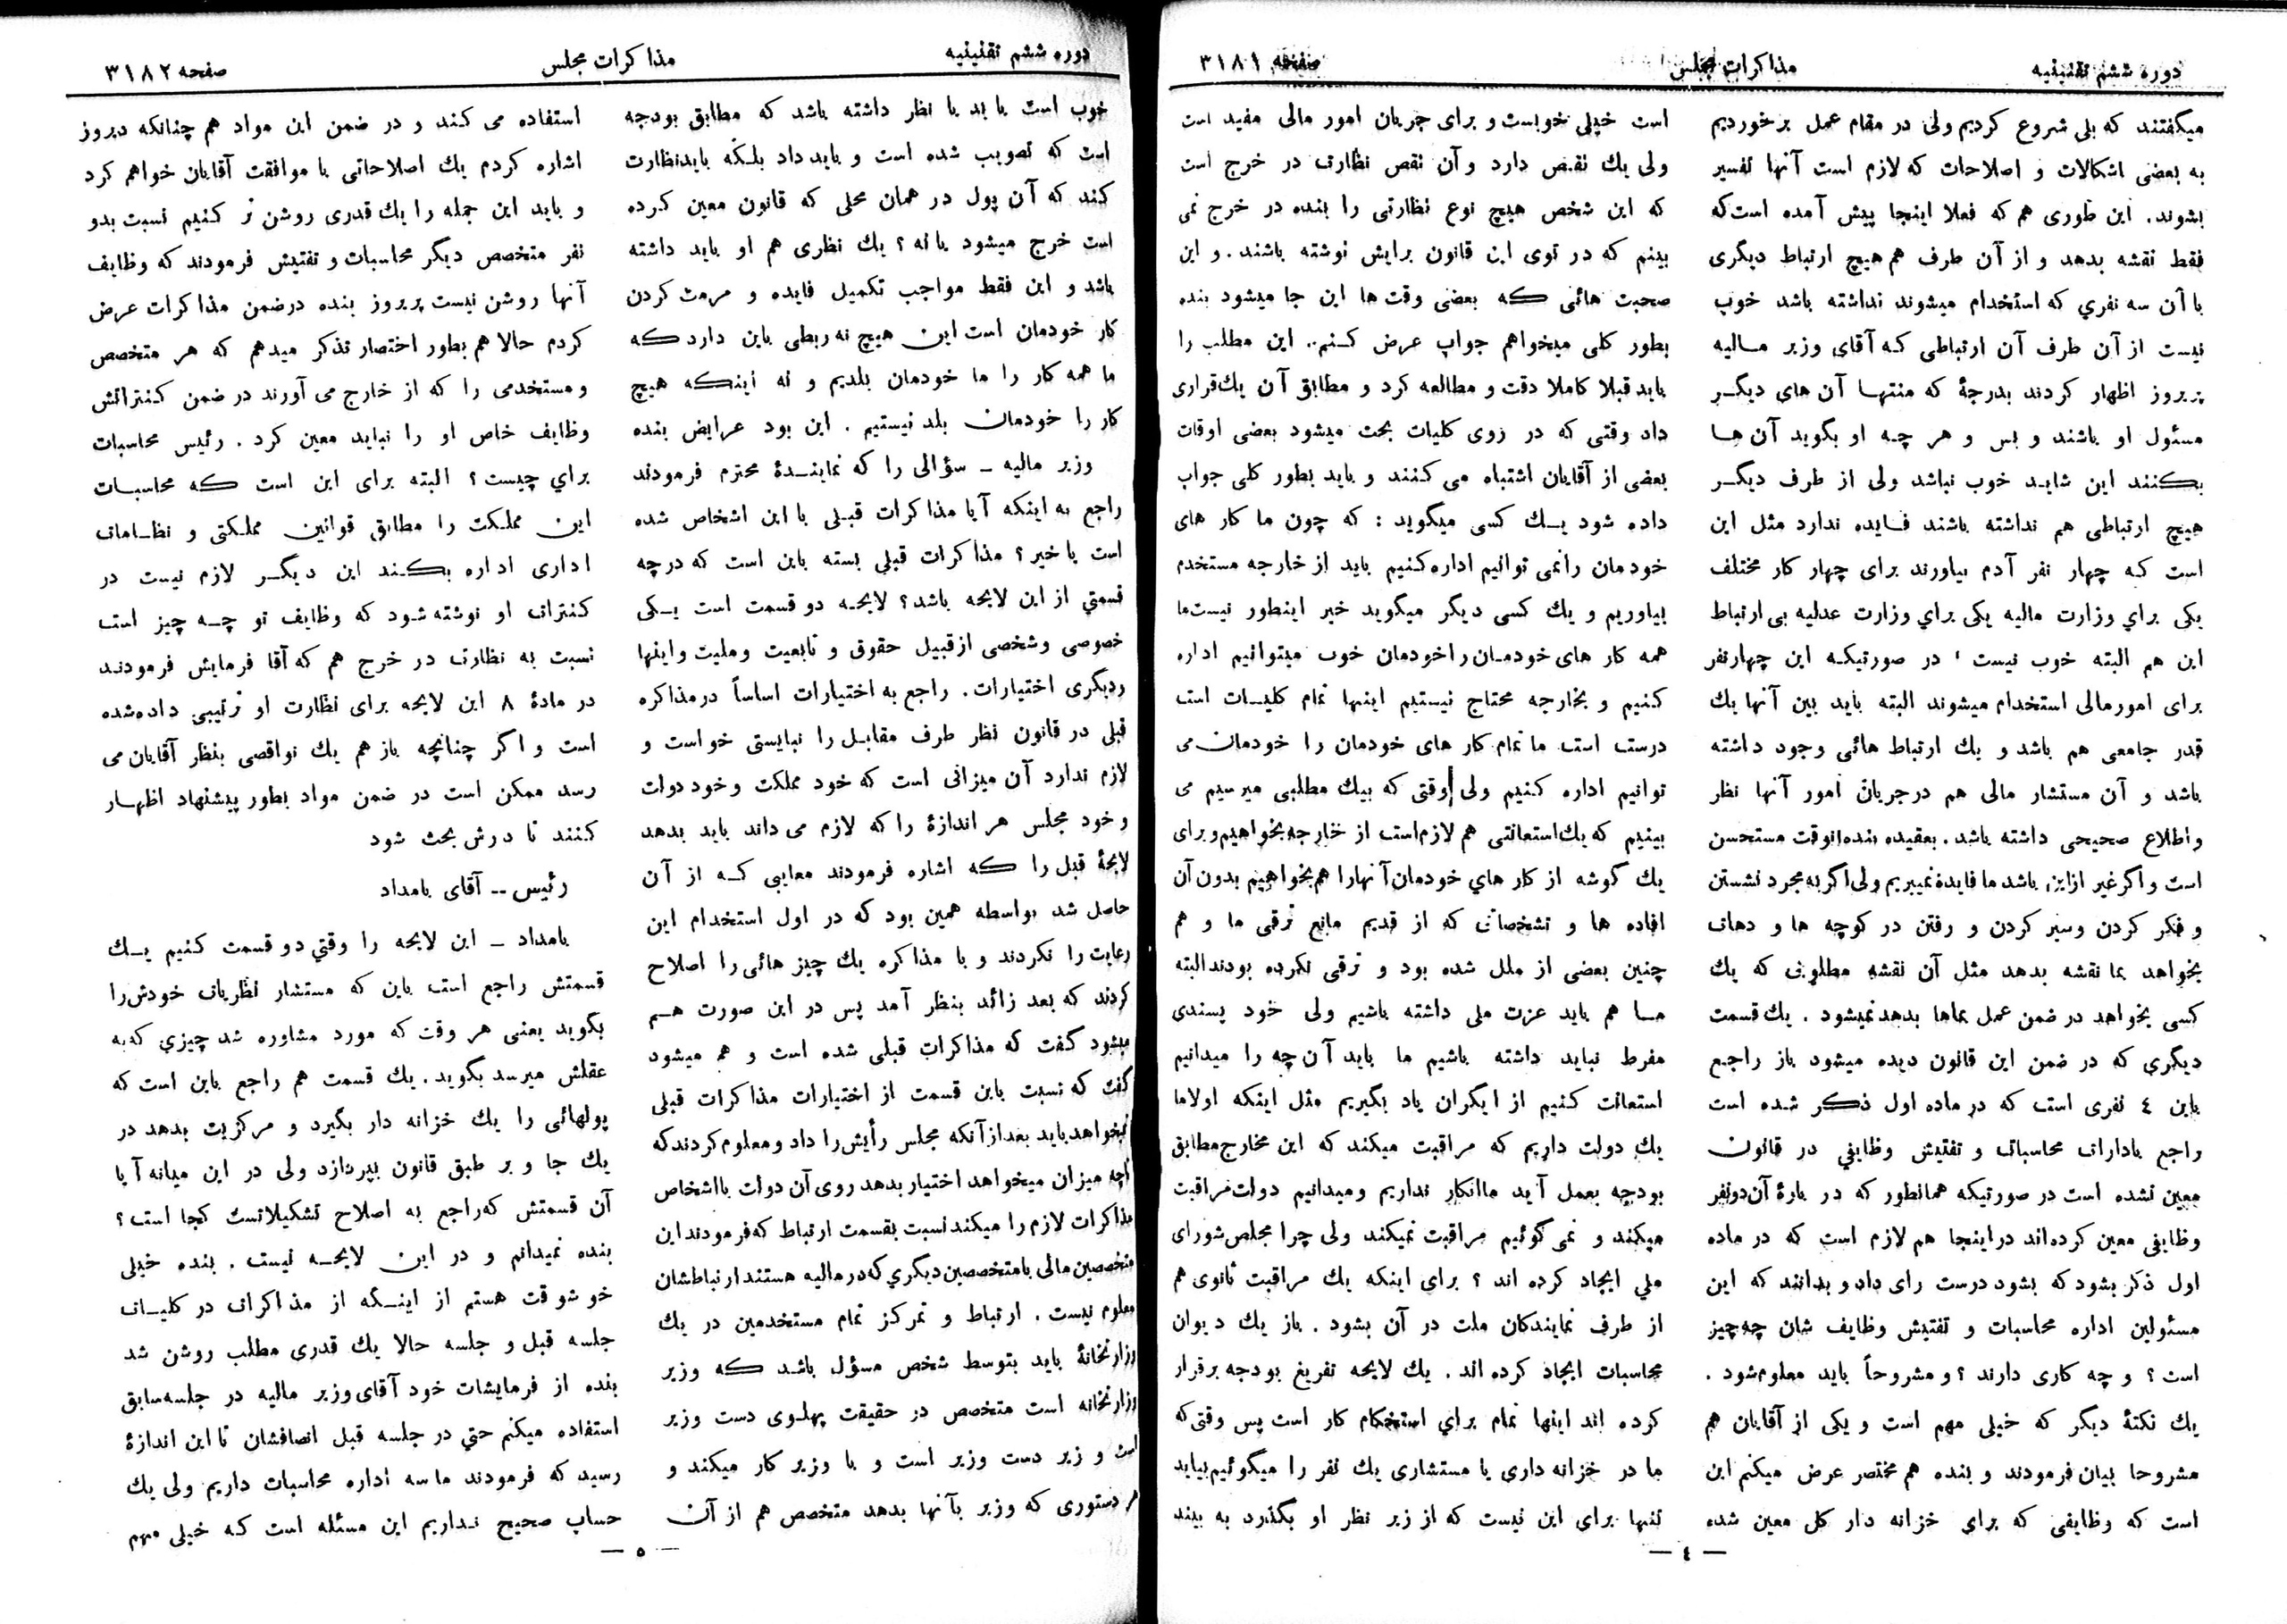 دوره ششم تقنینیه
مذاکرات مجلس
صفحه ۳۱۸۱
میگفتند که بلی شروع کردیم ولی در مقام عمل برخوردیم
به بعضی اشکالات و اصلاحات که لازم است آنها تفسیر
بشوند. این طوری هم که فعلا اینجا پیش آمده است که
فقط نقشه بدهد و از آن طرف هم هیچ ارتباط دیگری
با آن سه نفري که استخدام میشوند نداشته باشد خوب
نیست از آن طرف آن ارتباطی که آقای وزیر مالیه
پریروز اظهار کردند بدرجهٔ که منتها آن های دیگر
مسئول او باشند و بس و هر چه او بگوید آن ها
بکنند این شاید خوب نباشد ولی از طرف دیگر
هیچ ارتباطی هم نداشته باشند فایده ندارد مثل این
است که چهار نفر آدم بیاورند برای چهار کار مختلف
یکی براي وزارت مالیه یکی براي وزارت عدلیه بی ارتباط
این هم البته خوب نیست ، در صورتیکه این چهارنفر
برای امور مالی استخدام میشوند البته باید بین آنها یك
قدر جامعی هم باشد و یك ارتباط هائی وجود داشته
باشد و آن مستشار مالی هم در جریان امور آنها نظر
و اطلاع صحیحی داشته باشد. بعقیده بنده انوقت مستحسن
است و اگر غیر از این باشد ما فایده نمیبریم ولی اگر به مجرد نشستن
و فکر کردن و سیر کردن و رفتن در کوچه ها و دهات
بخواهد بما نقشه بدهد مثل آن نقشه مطلوبی که یك
کسی بخواهد در ضمن عمل بماها بدهد نمیشود . یك قسمت
دیگري که در ضمن این قانون دیده میشود باز راجع
باین ٤ نفری است که در ماده اول ذکر شده است
راجع بادارات محاسبات و تفتیش وظایفي در قانون
معین نشده است در صورتیکه همانطور که در بارهٔ آن دونفر
وظایفی معین کرده‌اند در اینجا هم لازم است که در ماده
اول ذکر بشود که بشود درست رای داد و بدانند که این
مسئولین اداره محاسبات و تفتیش وظایف شان چه چیز
است ؟ و چه کاری دارند ؟ و مشروحاً باید معلوم شود .
یك نکتهٔ دیگر که خیلی مهم است و یکی از آقایان هم
مشروحا بیان فرمودند و بنده هم مختصر عرض میکنم این
است که وظایفی که براي خزانه دار کل معین شده
است خیلی خوبست و برای جریان امور مالی مفید است
ولی یك نقص دارد و آن نقص نظارت در خرج است
که این شخص هیچ نوع نظارتی را بنده در خرج نمی
بینم که در توی این قانون برایش نوشته باشند. و این
صحبت هائی که بعضی وقت ها این جا میشود بنده
بطور کلی میخواهم جواب عرض کنم.. این مطلب را
باید قبلا کاملا دقت و مطالعه کرد و مطابق آن یك قراری
داد وقتی که در روی کلیات بحث میشود بعضی اوقات
بعضی از آقایان اشتباه می کنند و باید بطور کلی جواب
داده شود یك کسی میگوید : که چون ما کار های
خودمان را نمی توانیم اداره کنیم باید از خارجه مستخدم
بیاوریم و یك کسی دیگر میگوید خیر اینطور نیست ما
همه کار های خودمان را خودمان خوب میتوانیم اداره
کنیم و بخارجه محتاج نیستیم اینها تمام کلیات است
درست است ما تمام کار های خودمان را خودمان می
توانیم اداره کنیم ولی وقتی که بیك مطلبی میرسیم می
بینیم که یك استعانتی هم لازم است از خارجه بخواهیم و برای
یك گوشه از کار هاي خودمان آنها را هم بخواهیم بدون آن
افاده ها و تشخصاتی که از قدیم مانع ترقی ما و هم
چنین بعضی از ملل شده بود و ترقی نکرده بودند البته
ما هم باید عزت ملی داشته باشیم ولی خود پسندی
مفرط نباید داشته باشیم ما باید آن چه را میدانیم
استعانت کنیم از ایگران یاد بگیریم مثل اینکه اولاما
یك دولت داریم که مراقبت میکند که این مخارج مطابق
بودجه بعمل آید ما انکار نداریم و میدانیم دولت مراقبت
میکند و نمی گوئیم مراقبت نمیکند ولی چرا مجلس شورای
ملي ایجاد کرده اند ؟ برای اینکه یك مراقبت ثانوی هم
از طرف نمایندکان ملت در آن بشود . باز یك دیوان
محاسبات ایجاد کرده اند . یك لایحه تفریغ بودجه برقرار
کرده اند اینها تمام براي استحکام کار است پس وقتی که
ما در خزانه داری یا مستشاری یك نفر را میگوئیم بیاید
تنها برای این نیست که از زیر نظر او بگذرد به بیند
— ٤ —
دوره ششم تقنینیه
مذاکرات مجلس
صفحه ۳۱۸۲
خوب است یا بد یا نظر داشته باشد که مطابق بودجه
است که تصویب شده است و باید داد بلکه باید نظارت
کند که آن پول در همان محلی که قانون معین کرده
است خرج میشود یا نه ؟ یك نظری هم او باید داشته
باشد و این فقط مواجب تکمیل فایده و مرمت کردن
کار خودمان است این هیچ نه ربطی باین دارد که
ما همه کار را ما خودمان بلدیم و نه اینکه هیچ
کار را خودمان بلد نیستیم . این بود عرایض بنده
وزیر مالیه ــ سؤالی را که نمایندهٔ محترم فرمودند
راجع به اینکه آیا مذاکرات قبلی با این اشخاص شده
است یا خیر ؟ مذاکرات قبلی بسته باین است که در چه
قسمتي از این لایحه باشد ؟ لایحه دو قسمت است یکی
خصوصی و شخصی از قبیل حقوق و تابعیت و ملیت و اینها
و دیگری اختیارات . راجع به اختیارات اساساً در مذاکره
قبلی در قانون نظر طرف مقابل را نبایستی خواست و
لازم ندارد آن میزانی است که خود مملکت و خود دولت
و خود مجلس هر اندازهٔ را که لازم می داند باید بدهد
لایحهٔ قبل را که اشاره فرمودند معایبی که از آن
حاصل شد بواسطه همین بود که در اول استخدام این
رعایت را نکردند و با مذاکره یك چیز هائی را اصلاح
کردند که بعد زائد بنظر آمد پس در این صورت هم
میشود گفت که مذاکرات قبلی شده است و هم میشود
گفت که نسبت باین قسمت از اختیارات مذاکرات قبلی
نمیخواهد باید بعد از آنکه مجلس رأیش را داد و معلوم کردند که
تا چه میزان میخواهد اختیار بدهد روی آن دولت با اشخاص
مذاکرات لازم را میکند نسبت بقسمت ارتباط که فرمودند این
متخصصین مالی با متخصصین دیگري که در مالیه هستند ارتباطشان
معلوم نیست . ارتباط و تمرکز تمام مستخدمین در یك
وزارتخانهٔ باید بتوسط شخص مسؤل باشد که وزیر
وزارتخانه است متخصص در حقیقت پهلوی دست وزیر
است و زیر دست وزیر است و با وزیر کار میکند و
هر دستوری که وزیر بآنها بدهد متخصص هم از آن
استفاده می کند و در ضمن این مواد هم چنانکه دیروز
اشاره کردم یك اصلاحاتی با موافقت آقایان خواهم کرد
و باید این جمله را یك قدری روشن تر کنیم نسبت بدو
نفر متخصص دیگر محاسبات و تفتیش فرمودند که وظایف
آنها روشن نیست پریروز بنده در ضمن مذاکرات عرض
کردم حالا هم بطور اختصار تذکر میدهم که هر متخصص
و مستخدمی را که از خارج می آورند در ضمن کنتراتش
وظایف خاص او را نباید معین کرد . رئیس محاسبات
براي چیست ؟ البته برای این است که محاسبات
این مملکت را مطابق قوانین مملکتی و نظامات
اداری اداره بکند این دیگر لازم نیست در
کنترات او نوشته شود که وظایف تو چه چیز است
نسبت به نظارت در خرج هم که آقا فرمایش فرمودند
در مادهٔ ۸ این لایحه برای نظارت او ترتیبی داده شده
است و اگر چنانچه باز هم یك نواقصی بنظر آقایان می
رسد ممکن است در ضمن مواد بطور پیشنهاد اظهار
کنند تا درش بحث شود
رئیس -- آقای بامداد
بامداد ــ این لایحه را وقتي دو قسمت کنیم یك
قسمتش راجع است باین که مستشار نظریات خودش را
بگوید یعنی هر وقت که مورد مشاوره شد چیزي که به
عقلش میرسد بگوید. یك قسمت هم راجع باین است که
پولهائی را یك خزانه دار بگیرد و مرکزیت بدهد در
یك جا و بر طبق قانون بپردازد ولی در این میانه آیا
آن قسمتش که راجع به اصلاح تشکیلاتست کجا است ؟
بنده نمیدانم و در این لایحه نیست . بنده خیلی
خوشوقت هستم از اینکه از مذاکرات در کلیات
جلسه قبل و جلسه حالا یك قدری مطلب روشن شد
بنده از فرمایشات خود آقای وزیر مالیه در جلسه سابق
استفاده میکنم حتي در جلسه قبل انصافشان تا این اندازهٔ
رسید که فرمودند ما سه اداره محاسبات داریم ولی یك
حساب صحیح نداریم این مسئله است که خیلی مهم
— ٥ —